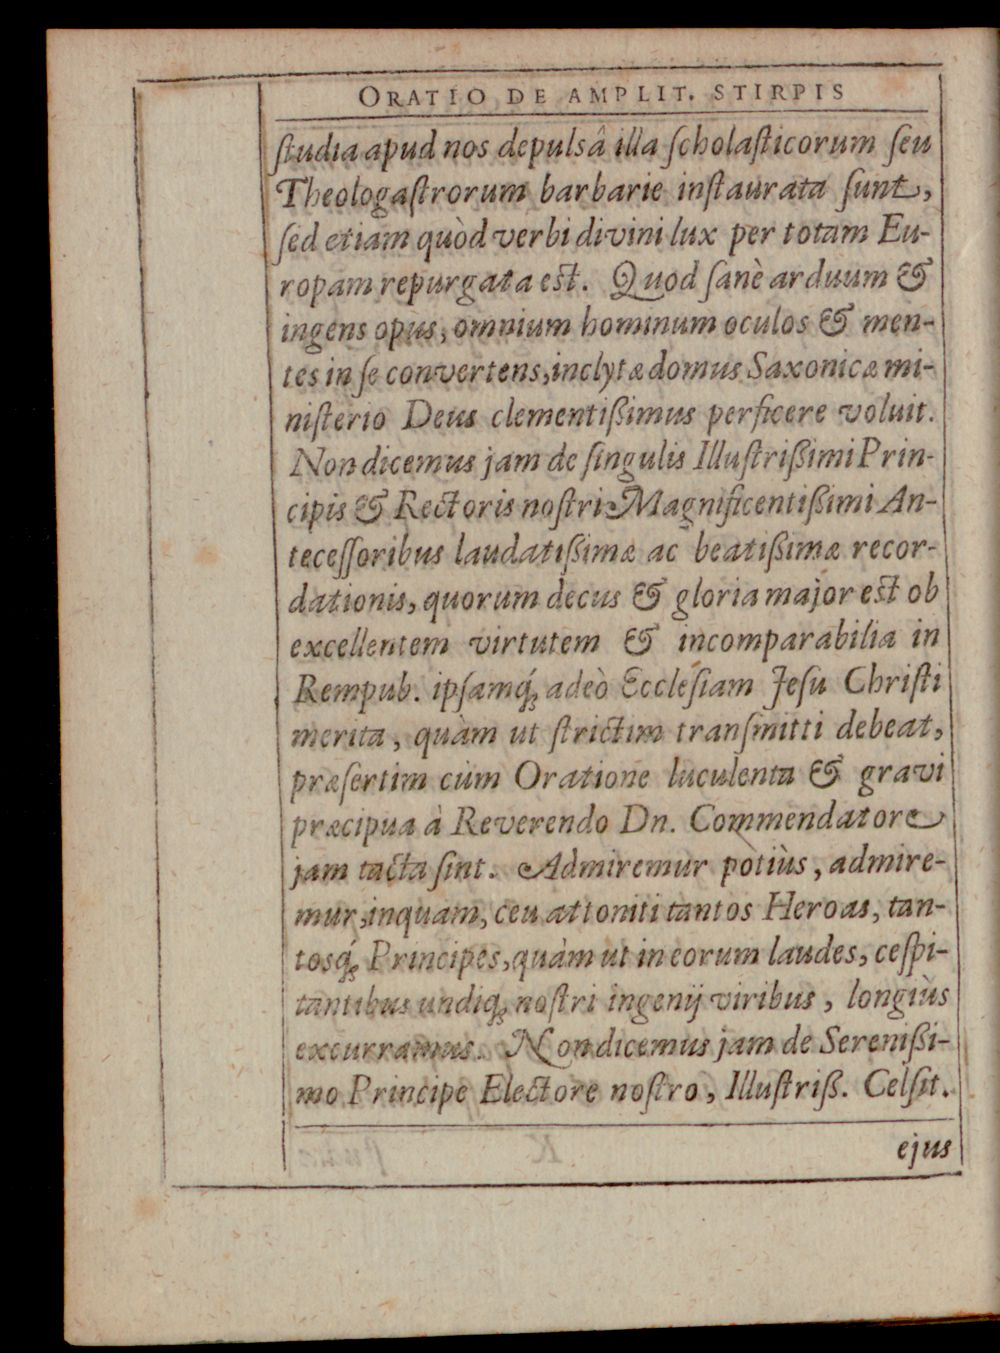 ORATIO DE AMPLIT. STIRPIS
ſtudia apud nos depulsâ illa ſcholaſticorum ſeu
Theologaſtrorum barbarie inſtaurata ſunt,
ſed etiam quòd verbi divini lux per totam Eu-
ropam repurgata est. Quod ſanè arduum &
ingens opus, omnium hominum oculos & men-
tes in ſe convertens, inclytæ domus Saxonicæ mi-
niſterio Deus clementißimus perficere voluit.
Non dicemus jam de ſingulis Illuſtrißimi Prin-
cipis & Rectoris noſtri Magnificentißimi An-
teceſſoribus laudatißimæ ac beatißimæ recor-
dationis, quorum decus & gloria major est ob
excellentem virtutem & incomparabilia in
Rempub. ipſamq́; adeò Eccleſiam Jeſu Chriſti
merita, quàm ut ſtrictim tranſmitti debeat,
præſertim cùm Oratione luculenta & gravi
præcipua à Reverendo Dn. Commendatore
jam tacta ſint. Admiremur potiùs, admire-
mur, inquam, ceu attoniti tantos Heroas, tan-
tosq́; Principes, quàm ut in eorum laudes, ceſpi-
tantibus undiq; noſtri ingenij viribus, longiùs
excurramus. Non dicemus jam de Sereniſßi-
mo Principe Electore noſtro, Illuſtriß. Celſit.
ejus